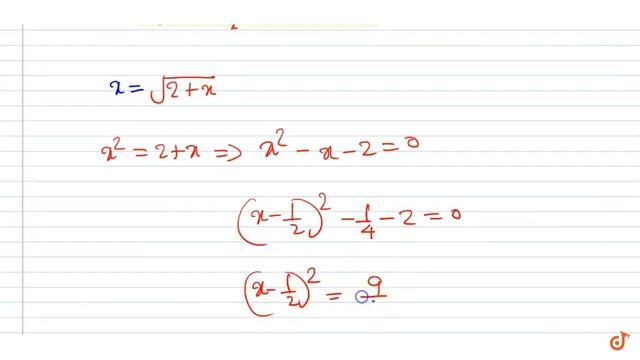 x = √2+x
x² = 2+x ⇒ x² - x - 2 = 0
(x - 1/2)² - 1/4 - 2 = 0
(x - 1/2)² = 9